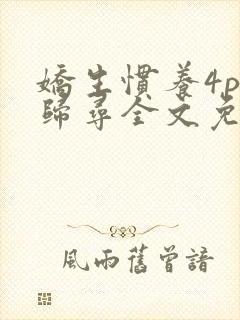 嬌生慣養4p
歸尋全文免
風雨舊曾諳